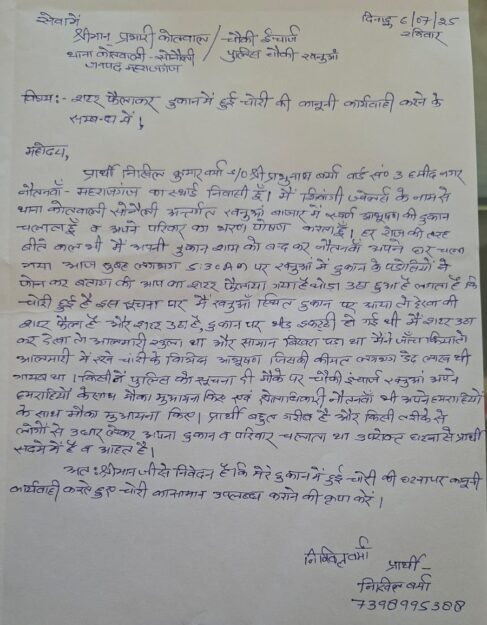 सेवा में
दिनांक 6/07/25
रविवार
श्रीमान प्रभारी कोतवाल / चौकी इंचार्ज
थाना कोतवाली - सोनौली पुलिस चौकी खनुआँ
जनपद महराजगंज
विषय:- शटर फैलाकर दुकान में हुई चोरी की कानूनी कार्यवाही करने के
सम्बन्ध में।
महोदय,
प्रार्थी निखिल कुमार वर्मा S/O श्री प्रभुनाथ वर्मा वार्ड सं0 3 हमीद नगर
नौतनवाँ - महराजगंज का स्थाई निवासी हूँ। मैं ज्वेलर्स के नाम से
थाना कोतवाली सोनौली अन्तर्गत खनुआँ बाजार में स्वर्ण आभूषण की दुकान
चलाता हूँ व अपने परिवार का भरण पोषण करता हूँ। हर रोज की तरह
बीते कल भी मैं अपनी दुकान शाम को बन्द कर नौतनवाँ अपने घर चला
गया आज सुबह लगभग 5:30 AM पर खनुआँ में दुकान के पड़ोसियों ने
फोन कर बताया की आप का शटर फैलाया गया है थोड़ा उठा हुआ है लगता है कि
चोरी हुई है इस सूचना पर मैं खनुआँ स्थित दुकान पर आया तो देखा की
शटर फैला है और शटर उठा है, दुकान पर भीड़ इकट्ठी हो गई थी मैं शटर उठा
कर देखा तो आलमारी खुला था और सामान बिखरा पड़ा था मैंने जाँच किया तो
आलमारी में रखे चांदी के विभिन्न आभूषण जिसकी कीमत लगभग डेढ़ लाख थी
गायब था। किसी ने पुलिस को सूचना दी मौके पर चौकी इंचार्ज खनुआँ अपने
हमराहियों के साथ मौका मुआयना किए एवं क्षेत्राधिकारी नौतनवाँ भी अपने हमराहियों
के साथ मौका मुआयना किए। प्रार्थी बहुत गरीब है और किसी तरीके से
लोगों से उधार लेकर अपना दुकान व परिवार चलाता था उपरोक्त घटना से प्रार्थी
सदमे में है व आहत है।
अतः श्रीमान जी से निवेदन है कि मेरे दुकान में हुई चोरी की घटना पर कानूनी
कार्यवाही करते हुए चोरी का सामान उपलब्ध कराने की कृपा करें।
निखिल वर्मा
प्रार्थी -
निखिल वर्मा
7398995388